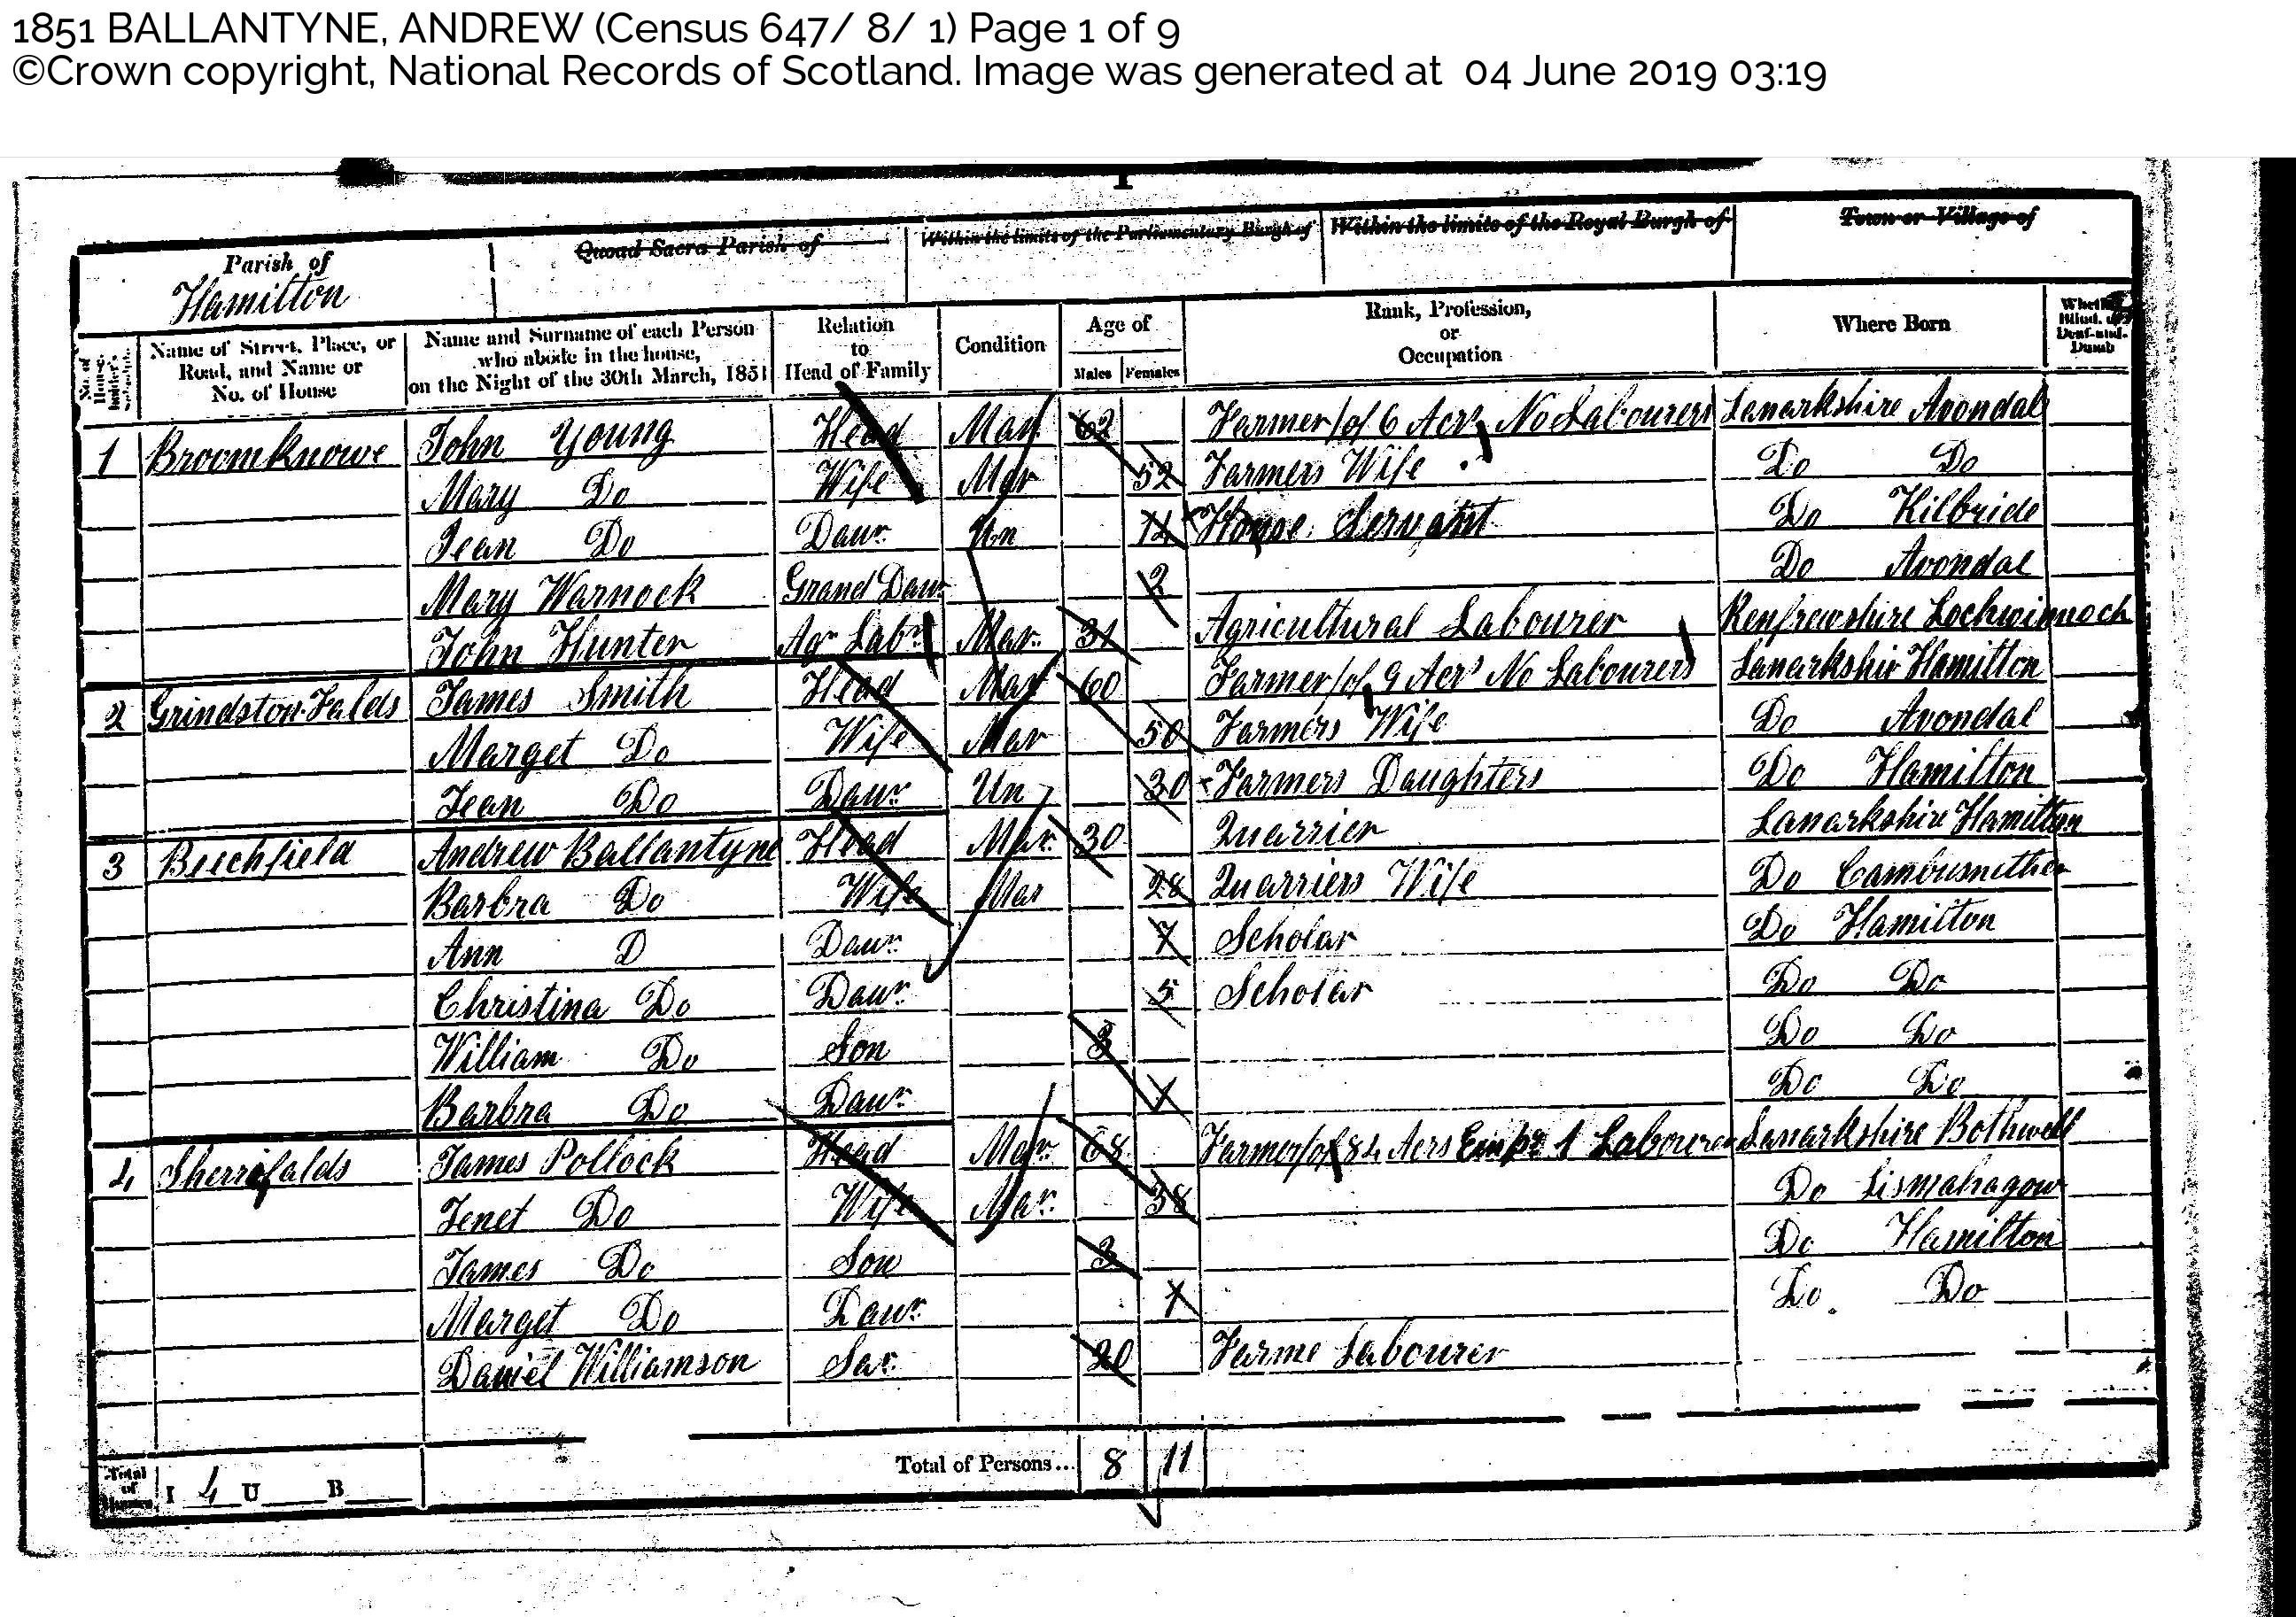 1851 BALLANTYNE, ANDREW (Census 647/ 8/ 1) Page 1 of 9
©Crown copyright, National Records of Scotland. Image was generated at 04 June 2019 03:19
Parish of Quoad Sacra Parish of Within the limits of the Parliamentary Burgh of Within the limits of the Royal Burgh of Town or Village of
Hamilton
No. of House- Name of Street, Place, or Road, and Name or No. of House Name and Surname of each Person who abode in the house, on the Night of the 30th March, 1851 Relation to Head of Family Condition Age of Males Females Rank, Profession, or Occupation Where Born Whether Blind, or Deaf-and-Dumb
1 Broomknowe John Young Head Mar 62 Farmer/of 6 Acrs No Labourers Lanarkshire Avondal
Mary Do Wife Mar 52 Farmers Wife Do Do
Jean Do Daur. Un House Servant Do Kilbride
Mary Warnock Grand Daur 2 Do Avondal
John Hunter Agr Labr Mar. 31 Agricultural Labourer Renfrewshire Lochwinnoch
2 Grindston Falds James Smith Head Mar 60 Farmer/of 9 Acrs No Labourers Lanarkshir Hamilton
Marget Do Wife Mar 50 Farmers Wife Do Avondal
Jean Do Daur. Un 30 Farmers Daughters Do Hamilton
3 Beechfield Andrew Ballantyne Head Mar. 30 Quarrier Lanarkshire Hamilton
Barbra Do Wife Mar 28 Quarriers Wife Do Cambusnethen
Ann D Daur. 7 Scholar Do Hamilton
Christina Do Daur. 5 Scholar Do Do
William Do Son 3 Do Do
Barbra Do Daur. Do Do
4 Sherrifalds James Pollock Head Mar. 68 Farmer/of 84 Acrs Empg 1 Labourer Lanarkshire Bothwell
Jenet Do Wife Mar. 38 Do Lismahagow
James Do Son 3 Do Hamilton
Marget Do Daur. Do Do
Daniel Williamson Sar. 20 Farme Labourer
Total of Houses I 4 U B Total of Persons... 8 11